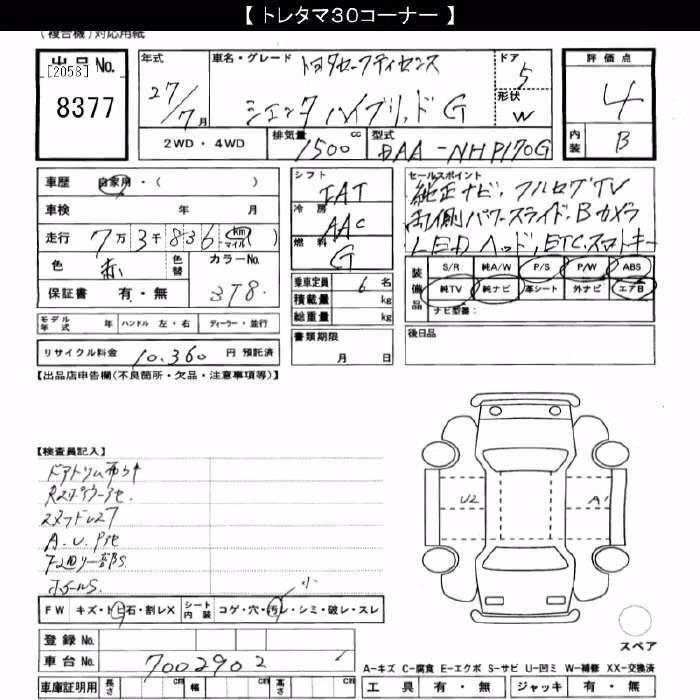 【 トレタマ30コーナー 】
(複合機)対応用紙
出品 No.
[2058]
8377
年式
27/7月
車名・グレード
トヨタセーフティセンス
シエンタ ハイブリッド G
ドア
5
形状
W
評価点
4
内装
B
2WD・4WD
排気量
1500 cc
型式
DAA-NHP170G
車歴 自家用・( )
車検 年 月
走行 7万3千836 (km マイル)
色 赤 色替 カラー No. 3T8
保証書 有・無
モデル年式 年 ハンドル 左・右 ディーラー・並行
リサイクル料金 10,360 円 預託済
シフト
IAT
冷房
AAC
燃料
G
乗車定員 6 名
積載量 kg
総重量 kg
書類期限
月 日
セールスポイント
純正ナビ、フルセグTV
両側パワースライド、Bカメラ
LEDヘッド、ETC、スマートキー
装備品
S/R 純A/W P/S P/W ABS
純TV 純ナビ 革シート 外ナビ エアB
ナビ型番:
後日品
【出品店申告欄(不良箇所・欠品・注意事項等)】
【検査員記入】
A.U.P
ホイールS
U2
A1
FW キズ・トビ石・割レX シート内装 コゲ・穴・汚レ・シミ・破レ・スレ
小
登録 No.
車台 No. 7002902
車庫証明用 長さ cm 幅 cm 高さ cm
スペア
A-キズ C-腐食 E-エクボ S-サビ U-凹ミ W-補修 XX-交換済
工具 有・無 ジャッキ 有・無